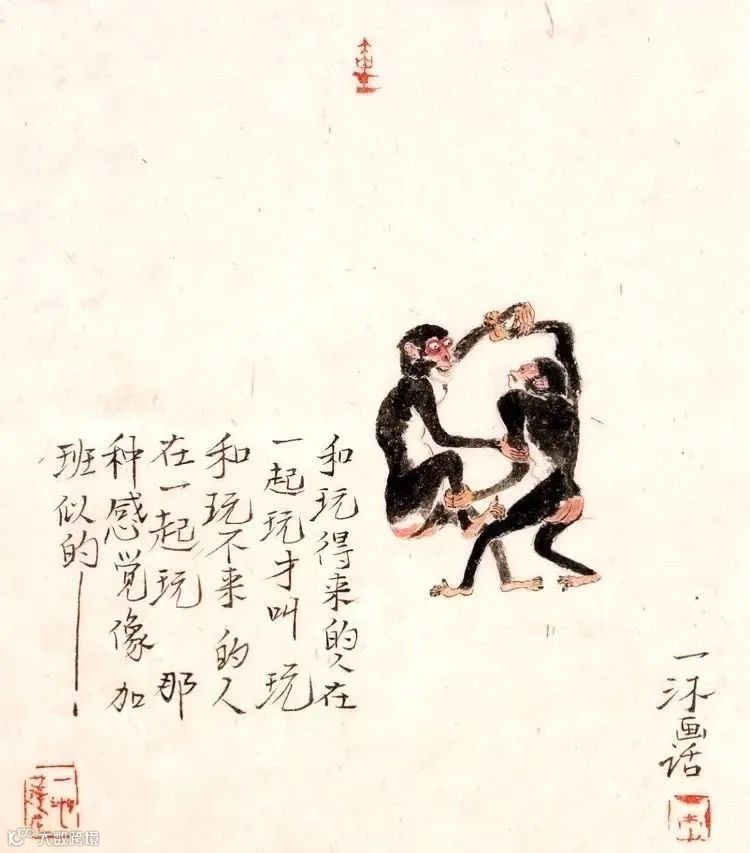 和玩得来的人在
一起玩才叫玩
和玩不来的人
在一起玩那
种感觉像加
班似的——!
一沐画话
大数跨境